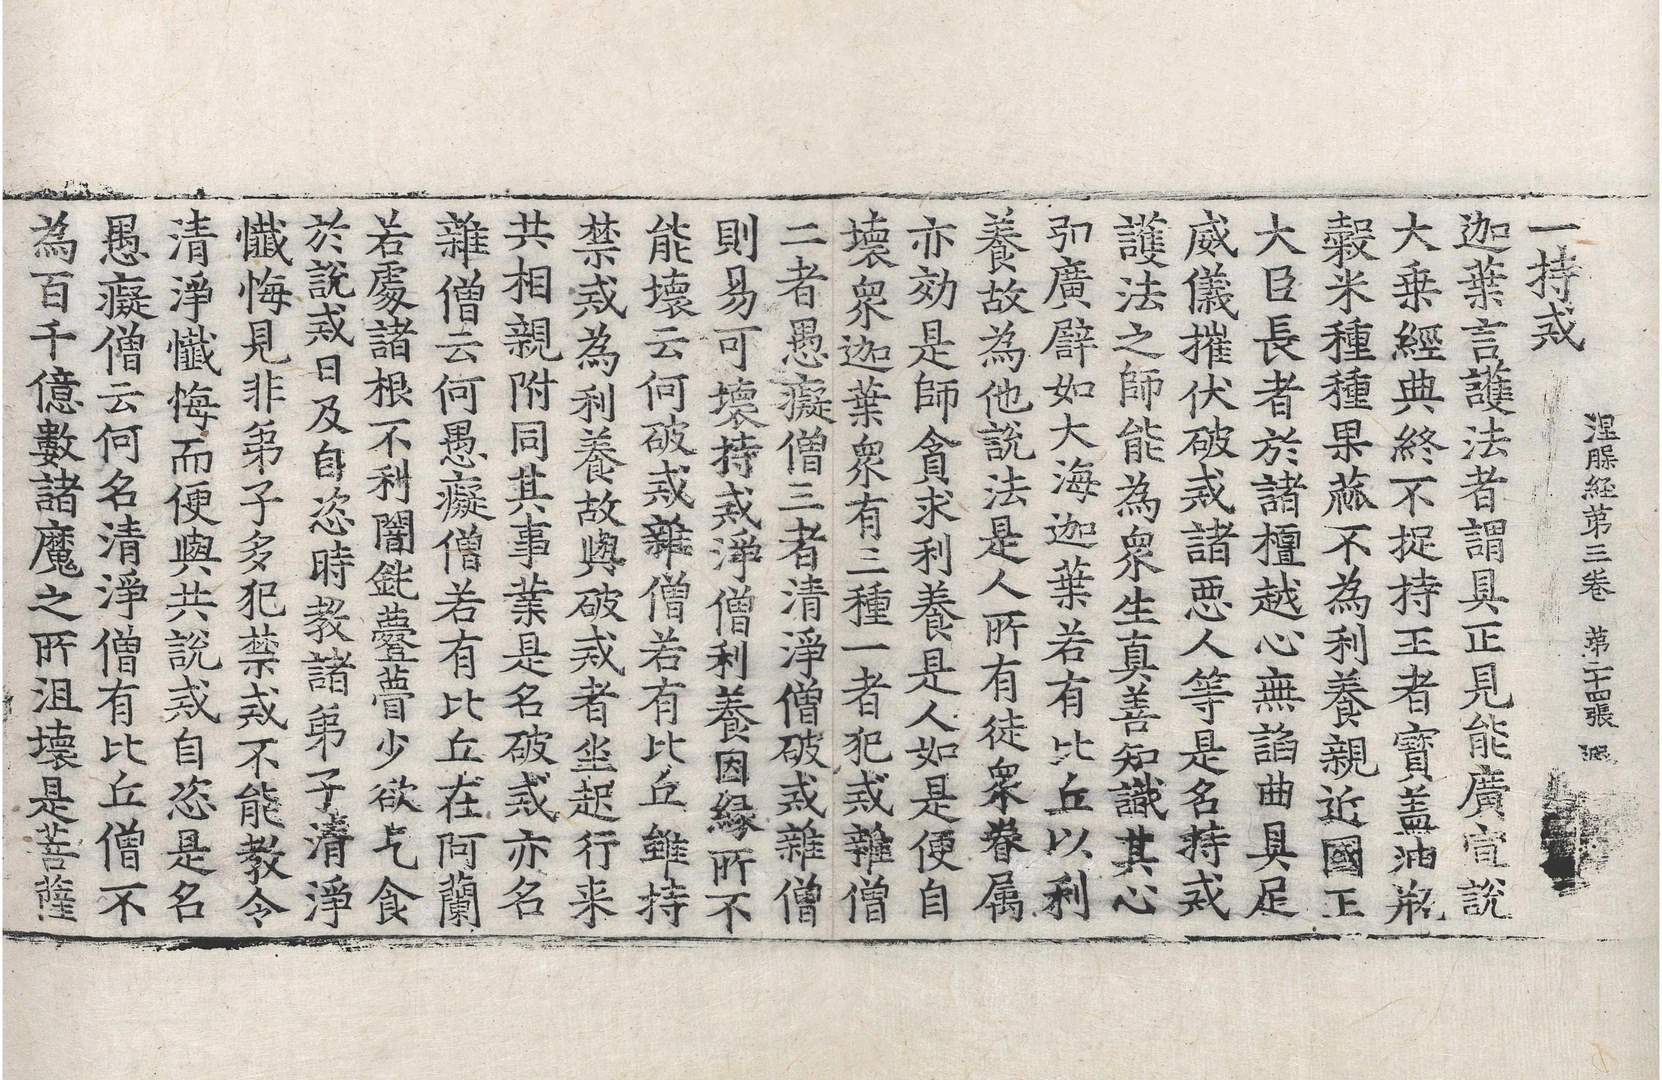 涅槃経苐三卷　苐二十四張
一持戒
迦葉言護法者謂具正見能廣宣説
大乗經典終不捉持王者寳盖油瓶
穀米種種果蓏不為利養親近國王
大臣長者於諸檀越心無諂曲具足
威儀摧伏破戒諸惡人等是名持戒
護法之師能為衆生真善知識其心
弘廣譬如大海迦葉若有比丘以利
養故為他説法是人所有徒衆眷属
亦効是師貪求利養是人如是便自
壊衆迦葉衆有三種一者犯戒雜僧
二者愚癡僧三者清淨僧破戒雜僧
則易可壊持戒淨僧利養因縁所不
能壊云何破戒雜僧若有比丘雖持
禁戒為利養故與破戒者坐起行来
共相親附同其事業是名破戒亦名
雜僧云何愚癡僧若有比丘在阿蘭
若處諸根不利闇鈍䕫瞢少欲乞食
於説戒日及自恣時教諸弟子清淨
懺悔見非弟子多犯禁戒不能教令
清淨懺悔而便與共説戒自恣是名
愚癡僧云何名清淨僧有比丘僧不
為百千億數諸魔之所沮壊是菩薩